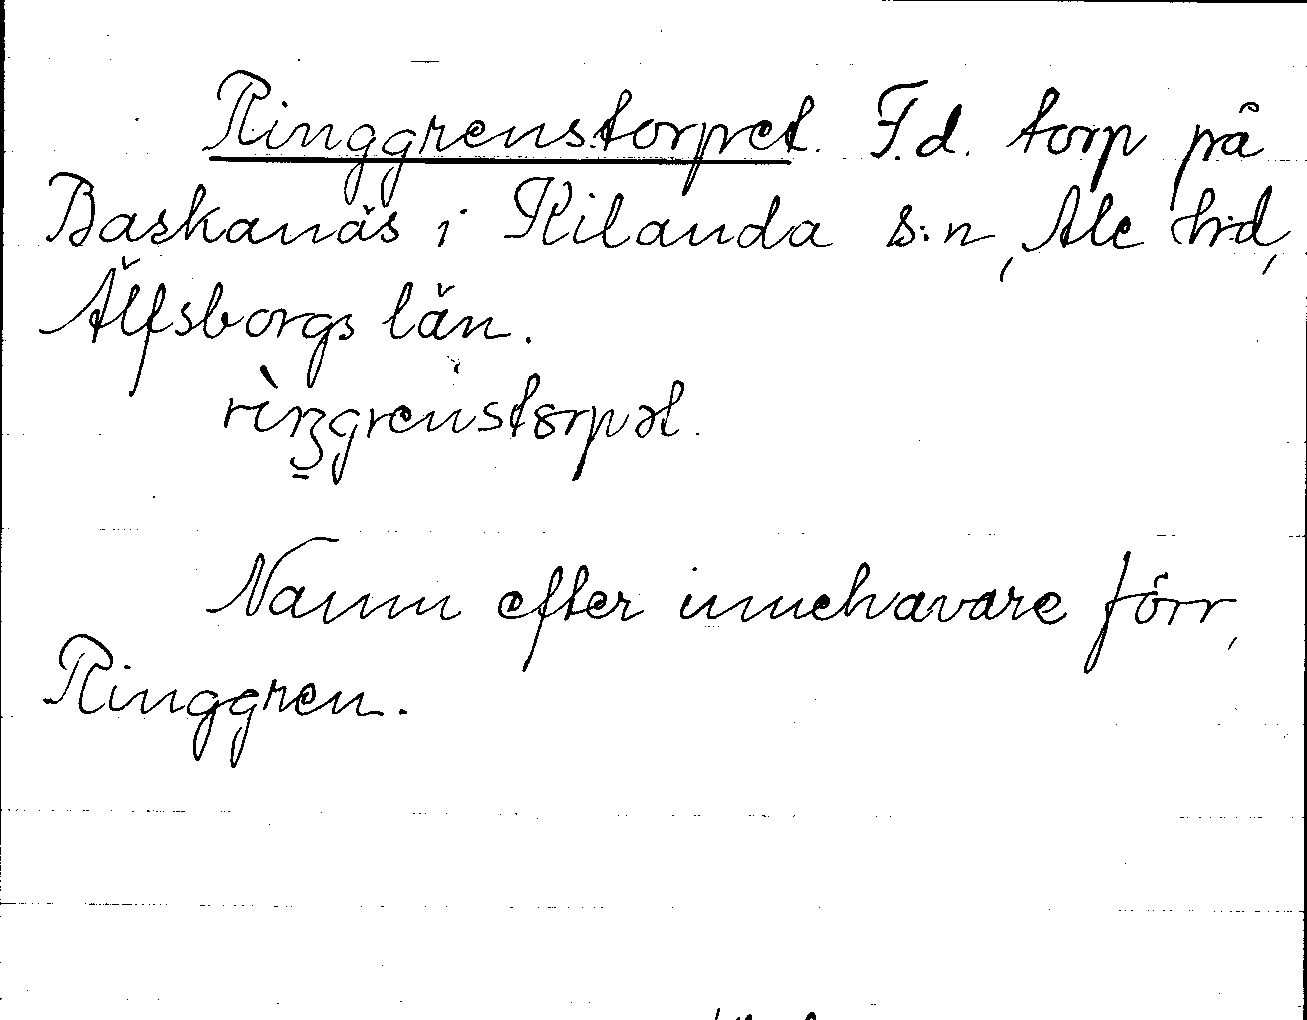 Ringgrenstorpet. F.d. torp på
Baskanäs i Kilanda s:n, Ale h:d,
Älfsborgs län.
rìŋgrenstorpət.
Namn efter innehavare förr,
Ringgren.